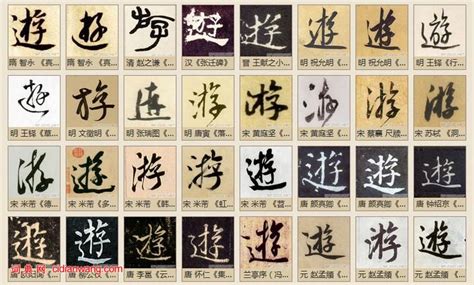 遊 遊 遊 遊 遊 遊 遊
隋 智永《真... 隋 智永《真... 清 赵之谦《... 汉《张迁碑》 晋 王献之小... 明 祝允明《... 明 祝允明《... 明 王铎《行...
遊 游 遊 游 游 游 游 游
明 王铎《草... 明 文徵明《... 明 张瑞图《... 明 唐寅《落... 宋 黄庭坚《... 宋 黄庭坚《... 宋 蔡襄 尺牍... 宋 苏轼《洞...
游 遊 游 游 游 遊 遊 遊
宋 米芾《德... 宋 米芾《多... 宋 米芾《韩... 宋 米芾《虹... 宋 米芾《苕... 唐 颜真卿《... 唐 颜真卿《... 唐 钟绍京《...
遊 遊 遊 遊 遊 遊 遊 遊
词典网 cidianwang.com
唐 欧阳询《... 唐 柳公权《... 唐 李邕《云... 唐 怀仁《集... 兰亭序《冯... 元 赵孟頫《... 元 赵孟頫《... 元 赵孟頫《...